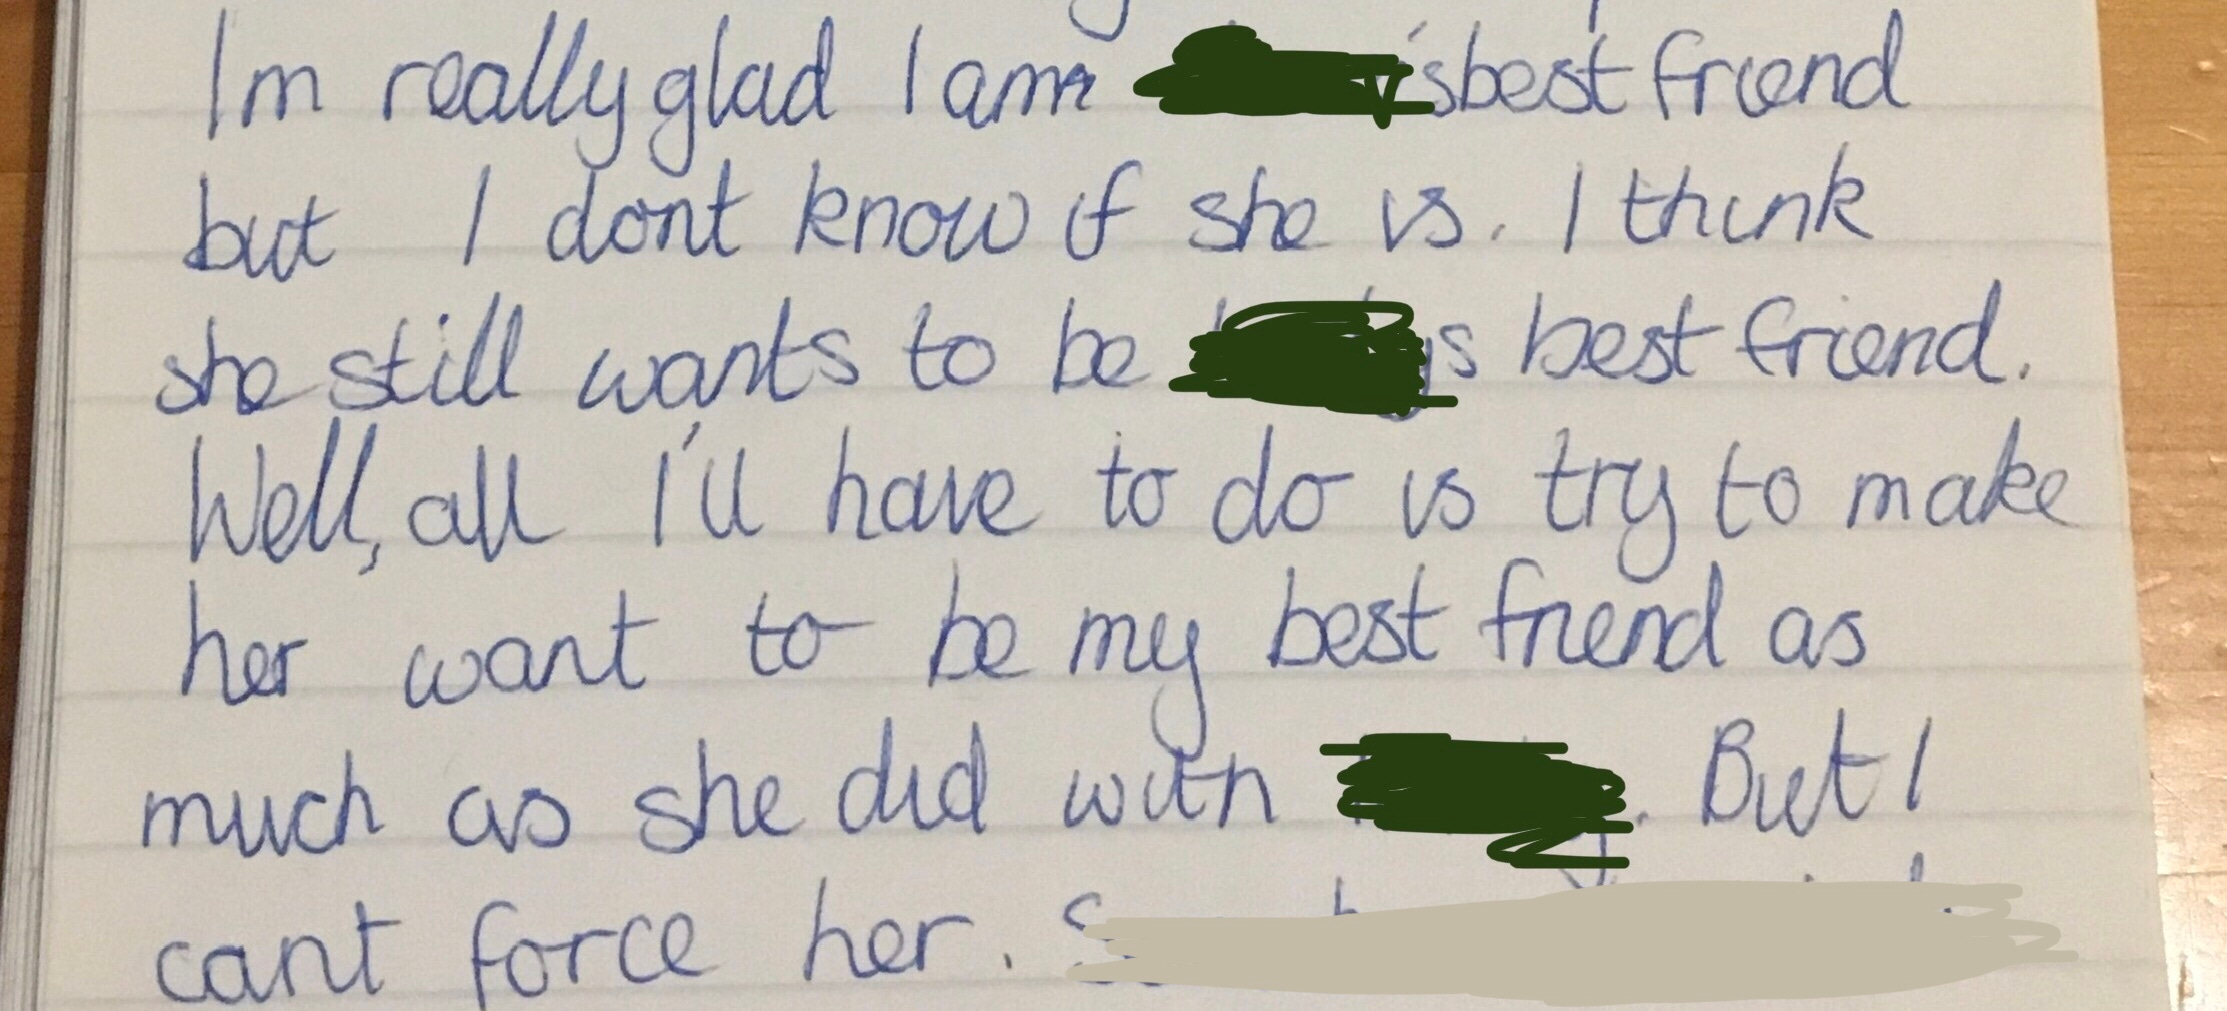 Im really glad I am 's best friend
but I dont know if she is. I think
she still wants to be s best friend.
Well, all I'll have to do is try to make
her want to be my best friend as
much as she did with . But I
cant force her.